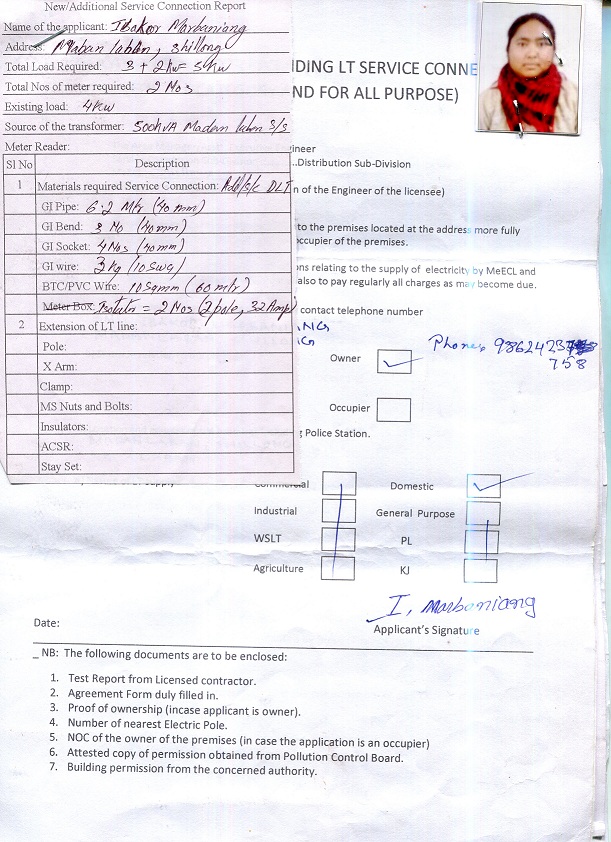 New/Additional Service Connection Report
Name of the applicant: Ibakor Marbaniang
Address: Maban laban, Shillong
Total Load Required: 3 + 2kw = 5kw
Total Nos of meter required: 2 Nos
Existing load: 4kw
Source of the transformer: 500kVA Madan laban S/S
Meter Reader:
Sl No Description
1 Materials required Service Connection: Add/s/c DLT
GI Pipe: 6.2 Mtr (40 mm)
GI Bend: 2 No (40mm)
GI Socket: 4 Nos (40mm)
GI wire: 3kg (10 swg)
BTC/PVC Wire: 10 Sqmm (60 mtr)
Meter Box: Isolator = 2 Nos (2 pole, 32 Amp)
2 Extension of LT line:
Pole:
X Arm:
Clamp:
MS Nuts and Bolts:
Insulators:
ACSR:
Stay Set:
DING LT SERVICE CONNE
ND FOR ALL PURPOSE)
ineer
..Distribution Sub-Division
n of the Engineer of the licensee)
to the premises located at the address more fully
occupier of the premises.
ns relating to the supply of electricity by MeECL and
also to pay regularly all charges as may become due.
contact telephone number
NG
Phone. 9862423
758
Owner
Occupier
g Police Station.
Commercial Domestic
Industrial General Purpose
WSLT PL
Agriculture KJ
I, Marbaniang
Date: Applicant's Signature
NB: The following documents are to be enclosed:
1. Test Report from Licensed contractor.
2. Agreement Form duly filled in.
3. Proof of ownership (incase applicant is owner).
4. Number of nearest Electric Pole.
5. NOC of the owner of the premises (in case the application is an occupier)
6. Attested copy of permission obtained from Pollution Control Board.
7. Building permission from the concerned authority.